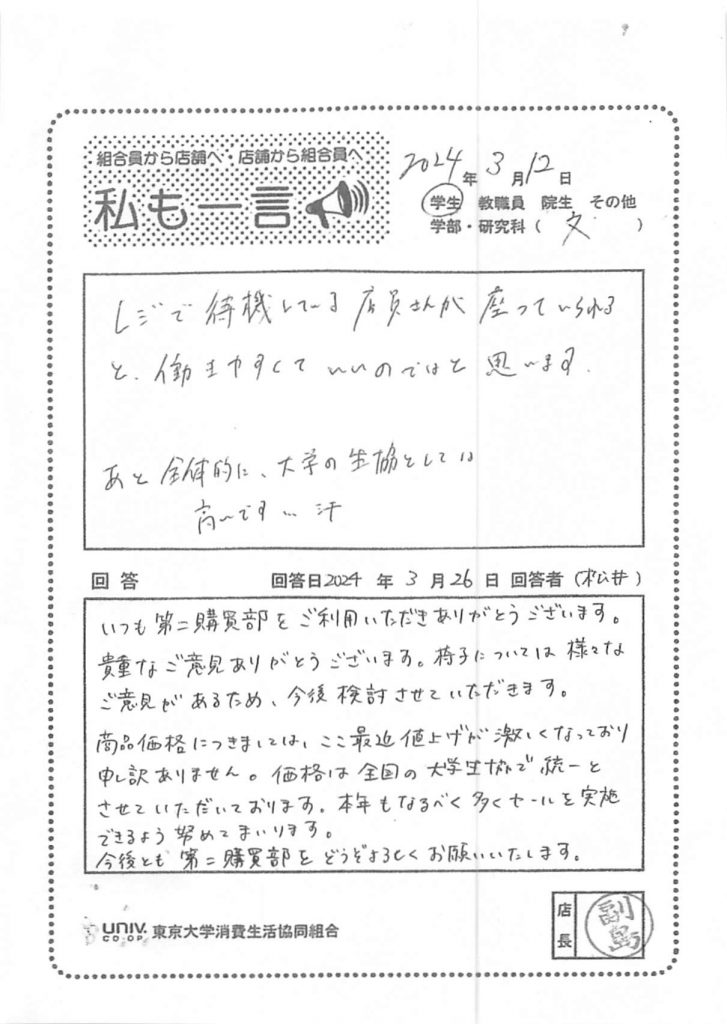 組合員から店舗へ・店舗から組合員へ
私も一言
2024年3月12日
学生 教職員 院生 その他
学部・研究科（ 文 ）
レジで待機している店員さんが座っていられる
と、働きやすくていいのではと思います。
あと全体的に、大学の生協としては
高いです… 汗
回答 回答日2024年3月26日 回答者（松井）
いつも第二購買部をご利用いただきありがとうございます。
貴重なご意見ありがとうございます。椅子については様々な
ご意見があるため、今後検討させていただきます。
商品価格につきましては、ここ最近値上げが激しくなっており
申し訳ありません。価格は全国の大学生協で統一と
させていただいております。本年もなるべく多くセールを実施
できるよう努めてまいります。
今後とも第二購買部をどうぞよろしくお願いいたします。
UNIV. CO-OP 東京大学消費生活協同組合
店長 副島